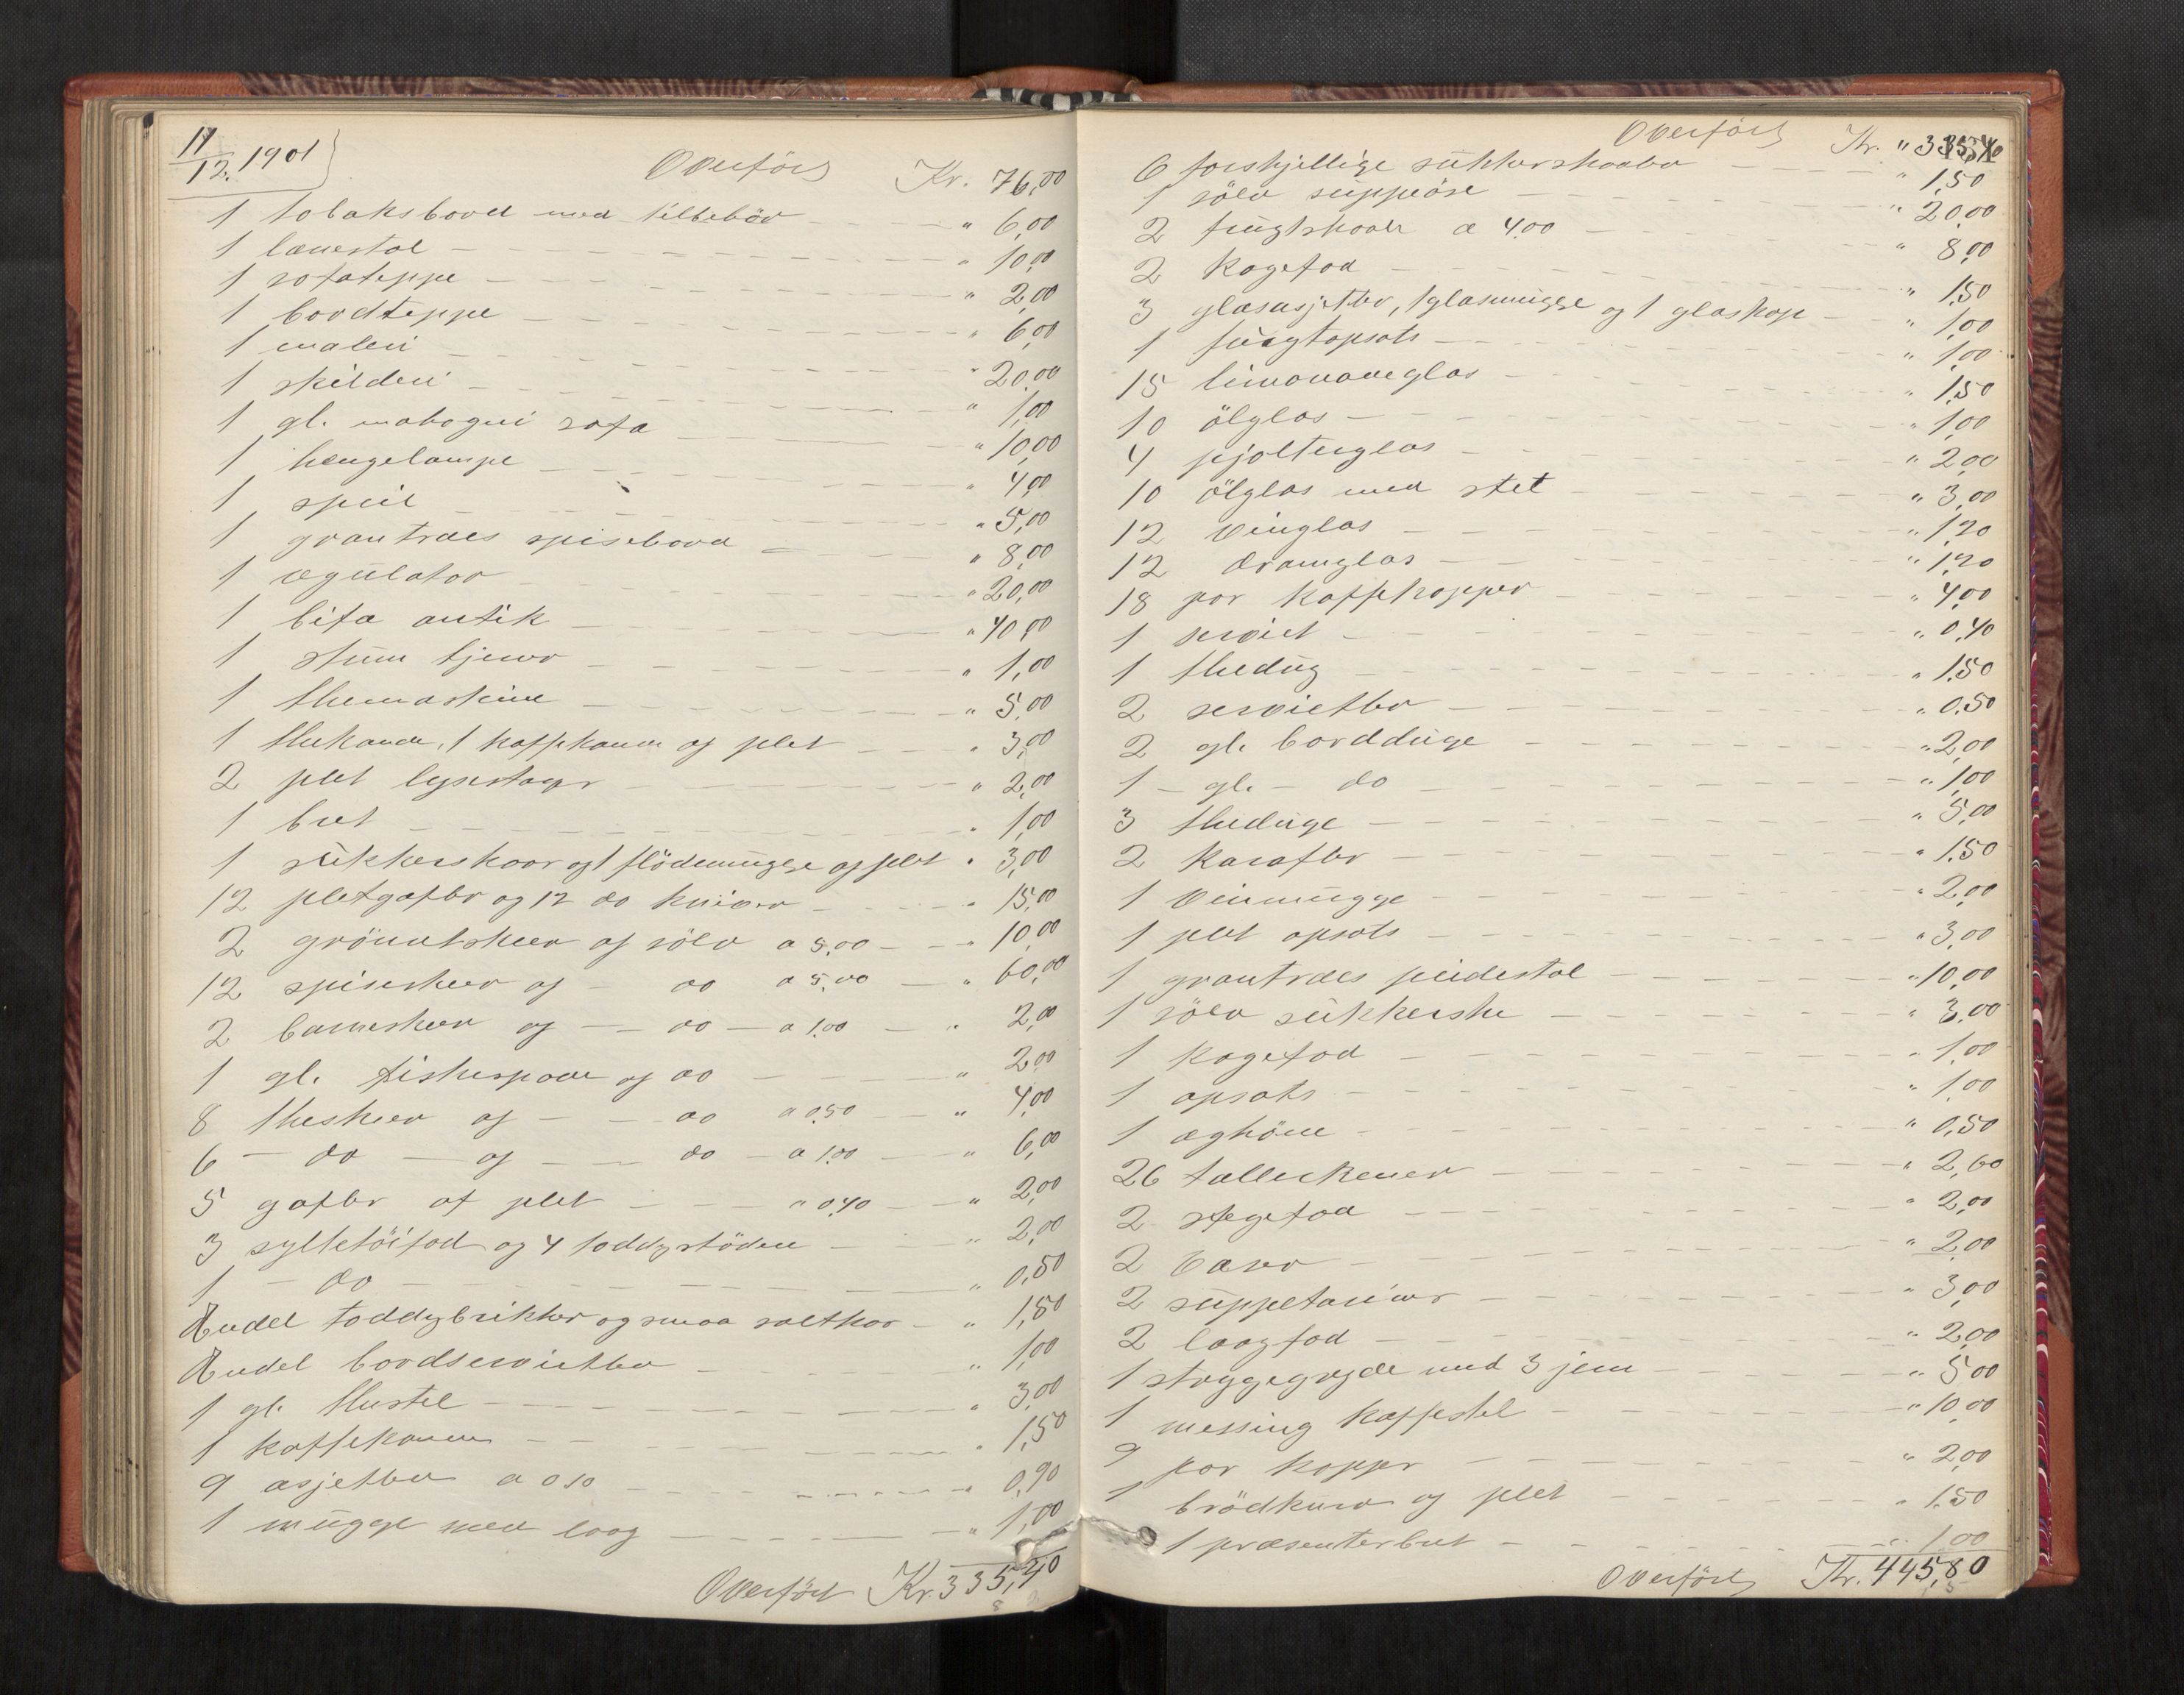 11/12. 1901
Overført Kr. 76,00
1 tobaksbord med tilbehör " 6,00
1 lænestol " 10,00
1 sofateppe " 2,00
1 bordteppe " 6,00
1 maleri " 20,00
1 skilderi " 1,00
1 gl. mahogni sofa " 10,00
1 hengelampe " 4,00
1 speil " 5,00
1 grantræes spisebord " 8,00
1 regulator " 20,00
1 bifa antik " 40,00
1 stum tjener " 1,00
1 themaskine " 5,00
1 thekande, 1 kaffekande af plet " 3,00
2 plet lysestager " 2,00
1 bret " 1,00
1 sukkerskaar og 1 flödemugge af plet " 3,00
12 pletgafler og 12 do kniver " 15,00
2 grönntskeer af sölv a 5,00 " 10,00
12 spiseskeer af - do a 5,00 " 60,00
2 barneskeer af - do - a 1,00 " 2,00
1 gl. fiskespade af do " 2,00
8 theskeer af - do a 0,50 " 4,00
6 - do - af - do - a 1,00 " 6,00
5 gafler af plet " 0,40 " 2,00
3 syltetöifad og 4 toddystödere " 2,00
1 - do - " 0,50
Endel toddybrikker og smaa saltkar " 1,50
Endel bordservietter " 1,00
1 gl. thestel " 3,00
1 kaffekande " 1,50
9 asjetter a 0,10 " 0,90
1 mugge med laag " 1,00
Overført Kr. 335,40
Overført Kr. " 335,40
6 forskjellige sukkerskaaler " 1,50
1 sölv suppeöse " 20,00
2 frugtskaaler a 4,00 " 8,00
2 kagefad " 1,50
3 glasasjetter, 1 glasmugge og 1 glaskop " 1,00
1 frugtopsats " 1,00
15 limonadeglas " 1,50
10 ölglas " 1,00
4 pjolterglas " 2,00
10 ölglas med stet " 3,00
12 vinglas " 1,20
12 dramglas " 1,20
18 par kaffekopper " 4,00
1 serviet " 0,40
1 thedug " 1,50
2 servietter " 0,50
2 gl. bordduge " 2,00
1 - gl. - do " 1,00
3 theduge " 5,00
2 karafler " 1,50
1 vinmugge " 2,00
1 plet opsats " 3,00
1 grantræes peidestal " 10,00
1 sölv sukkerske " 3,00
1 kagefad " 1,00
1 opsats " 1,00
1 æghöne " 0,50
26 tallerkener " 2,60
2 stegefad " 2,00
2 vaser " 2,00
2 suppetariner " 3,00
2 laagfad " 2,00
1 stryggegryde med 3 jern " 5,00
1 messing kaffestel " 10,00
9 par kopper " 2,00
1 brödkurv af plet " 1,50
1 præsenterbret " 1,00
Overført Kr. 445,80